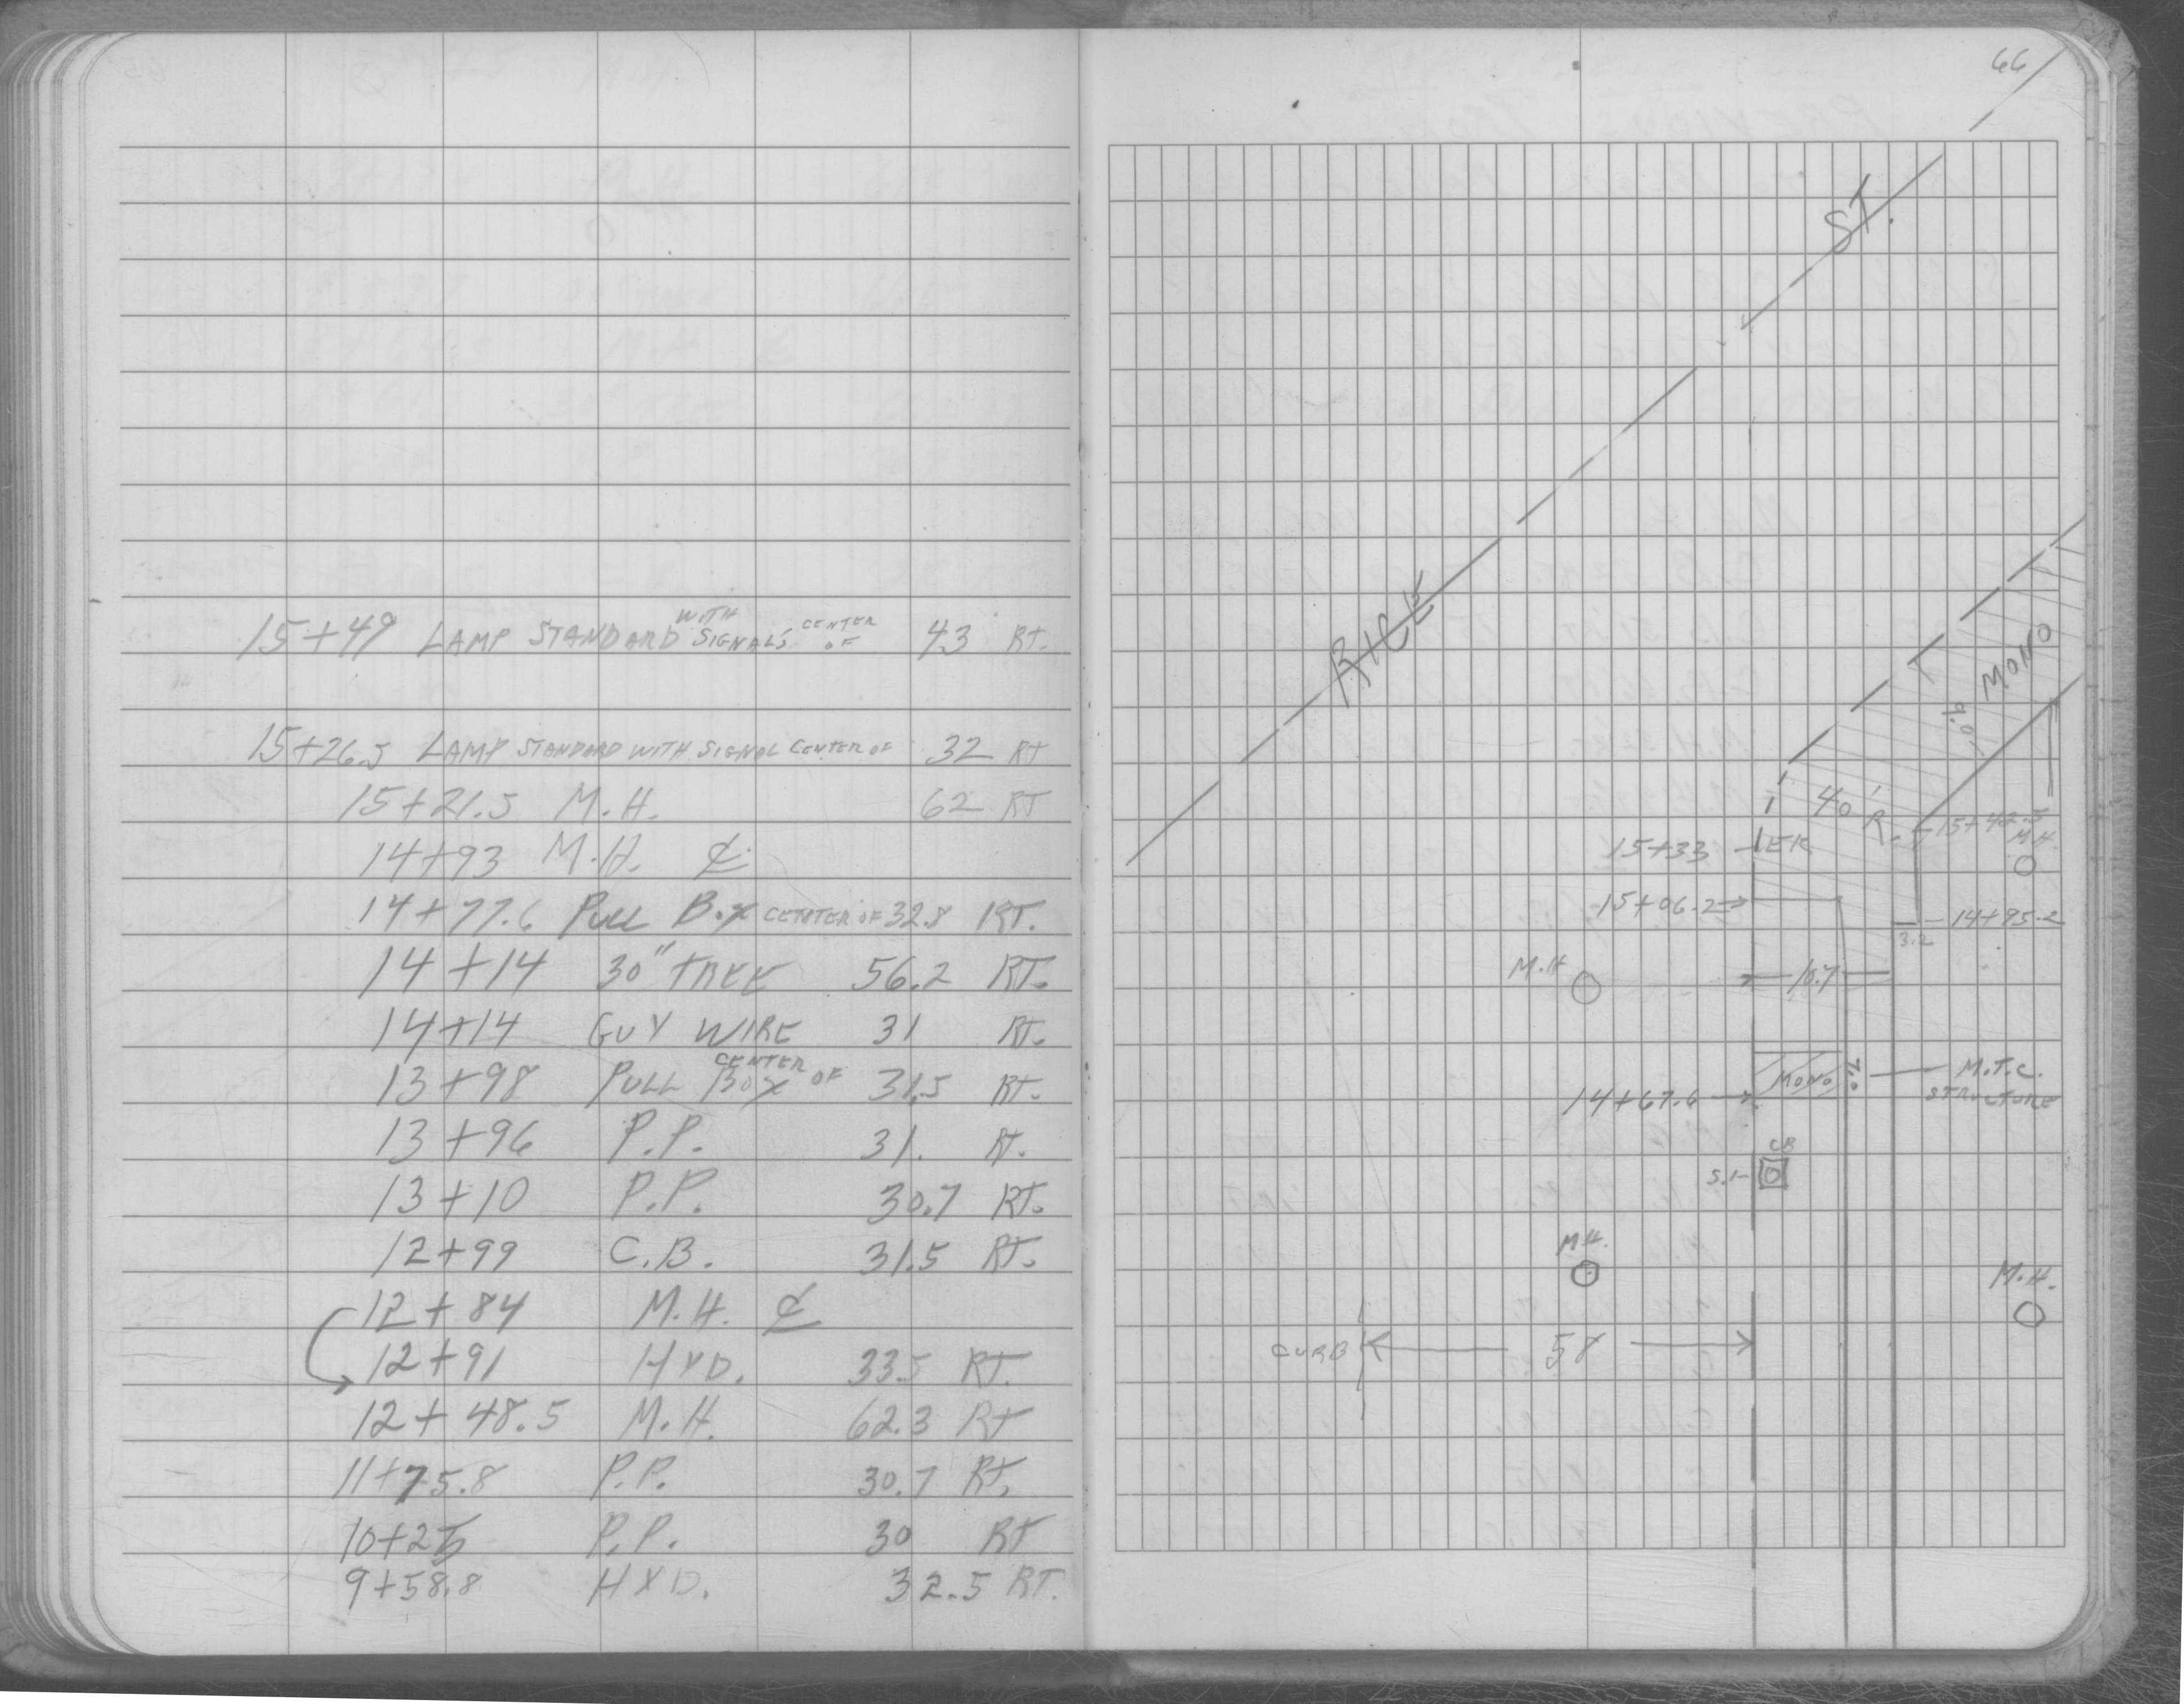 15+49 LAMP STANDARD WITH SIGNALS CENTER OF 43 RT.
15+26.5 LAMP STANDARD WITH SIGNAL CENTER OF 32 RT
15+21.5 M.H. 62 RT
14+93 M.H. ℄
14+77.6 PULL BOX CENTER OF 32.8 RT.
14+14 30" TREE 56.2 RT.
14+14 GUY WIRE 31 RT.
13+98 PULL BOX CENTER OF 31.5 RT.
13+96 P.P. 31. RT.
13+10 P.P. 30.7 RT.
12+99 C.B. 31.5 RT.
12+84 M.H. ℄
12+91 HYD. 33.5 RT.
12+48.5 M.H. 62.3 RT
11+75.8 P.P. 30.7 RT.
10+25 P.P. 30 RT
9+58.8 HYD. 32.5 RT.
66
ST.
RICE
MONO
40' R.
15+33
15+06.2
M.H.
14+95.2
3.2
M.H
10.7
MONO
M.T.C.
STRUCTURE
14+67.6
CB
M.H.
M.H.
CURB
58